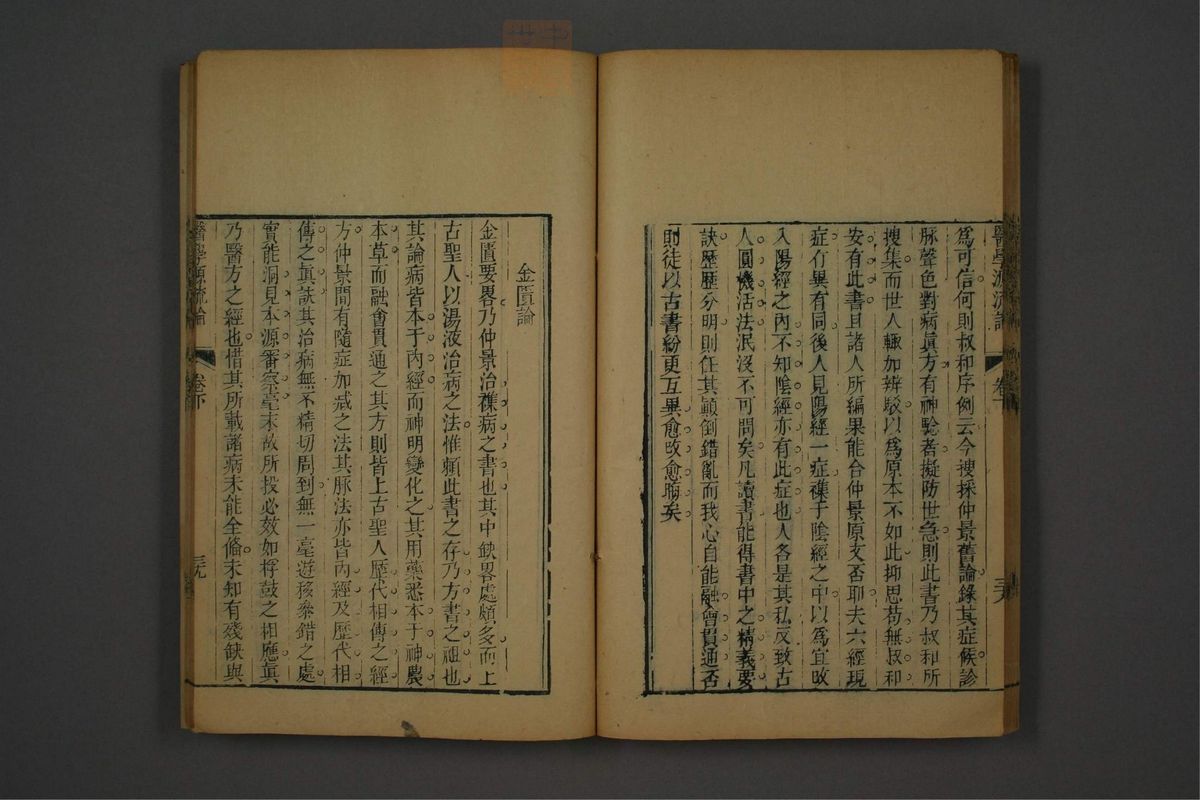 醫學源流論
卷下
三六
為可信何則叔和序例云今搜採仲景舊論錄其症候診
脉聲色對病眞方有神騐者擬防世急則此書乃叔和所
搜集而世人輙加辨駁以為原本不如此抑思苟無叔和
安有此書且諸人所編果能合仲景原文否耶夫六經現
症有異有同後人見陽經一症襍于陰經之中以為宜改
入陽經之內不知陰經亦有此症也人各是其私反致古
人圓機活法泯沒不可問矣凡讀書能得書中之精義要
訣歷歷分明則任其顛倒錯亂而我心自能融會貫通否
則徒以古書紛更互異愈改愈晦矣
金匱論
金匱要畧乃仲景治襍病之書也其中缺畧處頗多而上
古聖人以湯液治病之法惟頼此書之存乃方書之祖也
其論病皆本于內經而神明變化之其用藥悉本于神農
本草而融會貫通之其方則皆上古聖人歷代相傳之經
方仲景間有隨症加减之法其脉法亦皆內經及歷代相
傳之眞訣其治病無不精切周到無一毫遊移叅錯之處
實能洞見本源審察毫末故所投必效如桴鼓之相應眞
乃醫方之經也惜其所載諸病未能全備未知有殘缺與
醫學源流論
卷下
三九